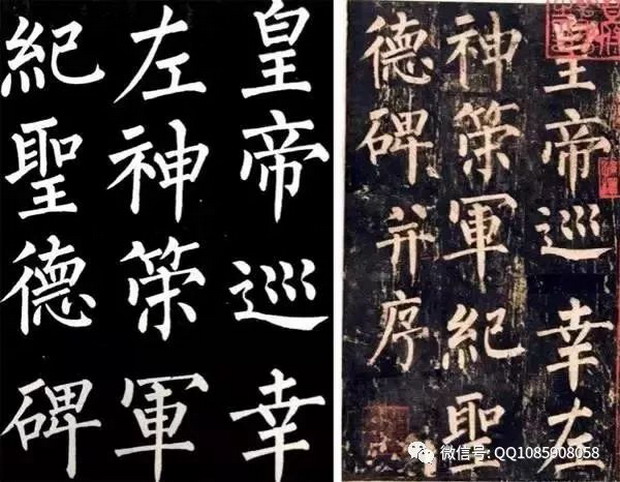 皇帝巡幸
左神策軍
紀聖德碑
皇帝巡幸左
神策軍紀聖
德碑并序
微信号: QQ1085908058